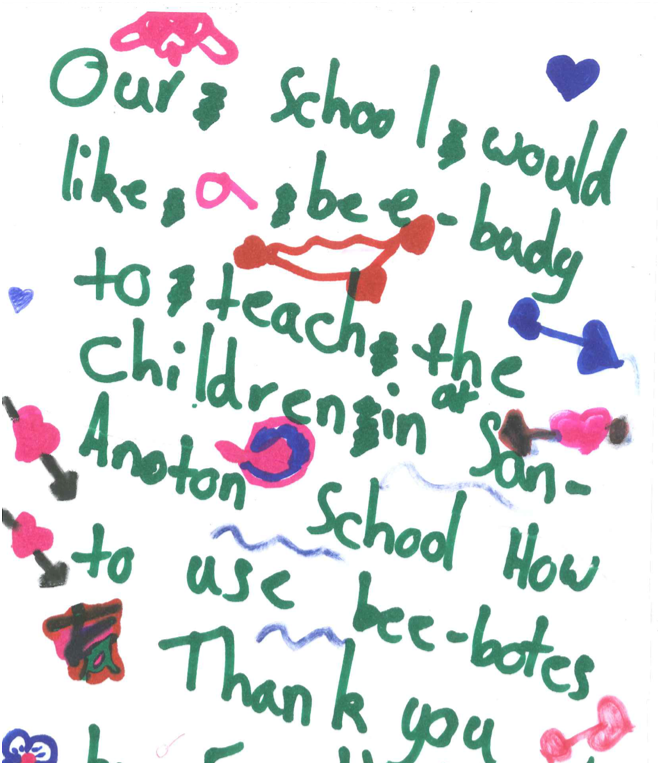 Our School would
like a bee-bady
to teach the
children in at San-
Anoton
School How
to use bee-botes
Thank you